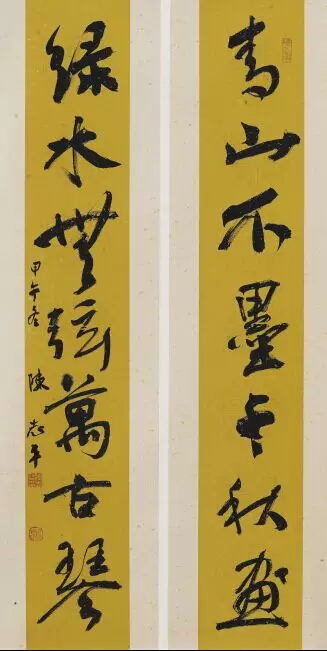 青山不墨千秋畫
綠水無絃萬古琴
甲午冬 陳志平